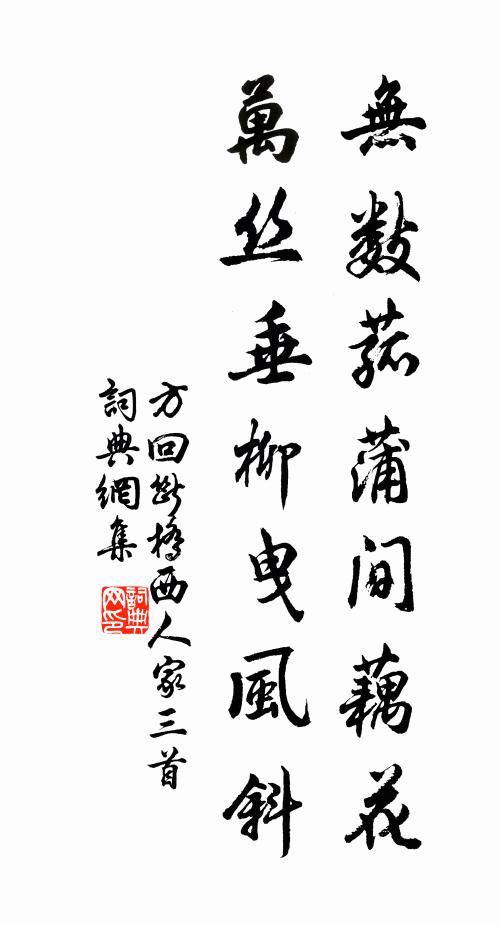 無數菰蒲間藕花
萬丝垂柳曳風斜
方回斷橋西人家三首
詞典網集
詞典
网印